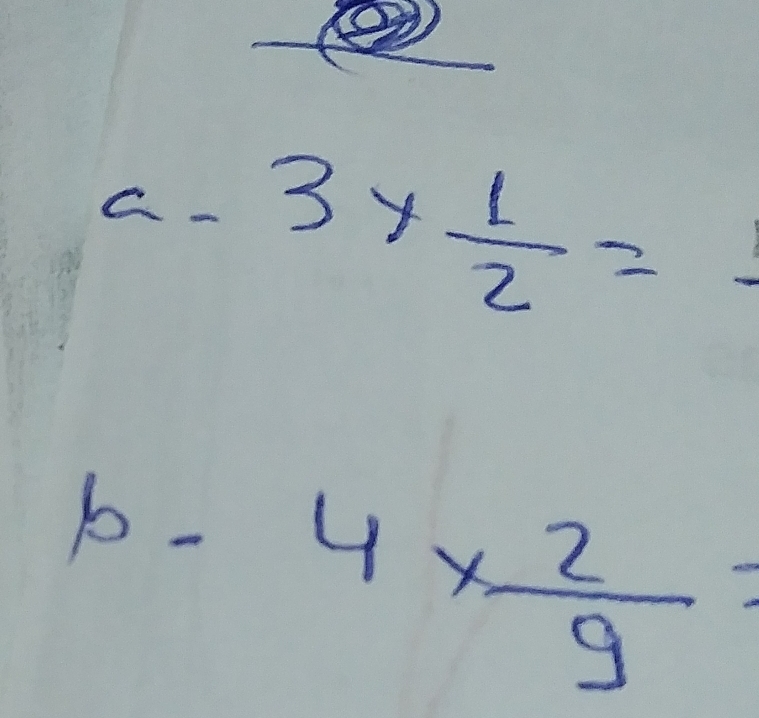 a - 3 × 1/2 =
b - 4 × 2/9 =